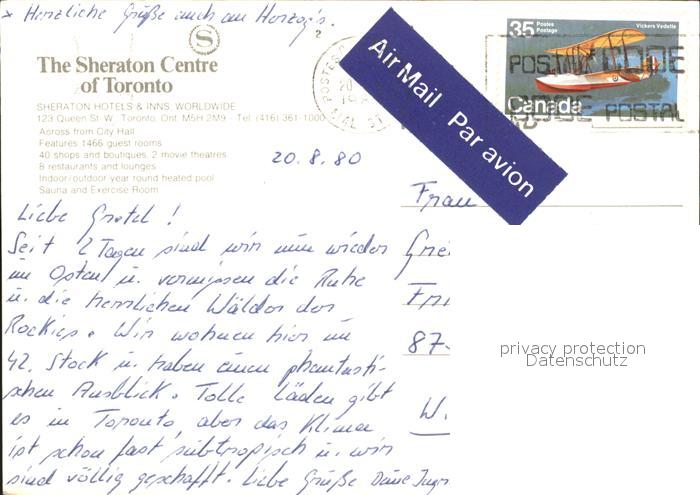 * Herzliche Grüße auch an Herzog's.
The Sheraton Centre
of Toronto
SHERATON HOTELS & INNS, WORLDWIDE
123 Queen St. W., Toronto, Ont. M5H 2M9 - Tel: (416) 361-1000
Across from City Hall
Features 1466 guest rooms
40 shops and boutiques, 2 movie theatres
8 restaurants and lounges
Indoor/outdoor year round heated pool
Sauna and Exercise Room
35 Postes
Postage
Vickers Vedette
Canada
POSTAL CODE
CODE POSTAL
Air Mail Par avion
20.8.80
Liebe Gretel!
Seit 2 Tagen sind wir nun wieder
im Osten u. vermissen die Ruhe
u. die herrlichen Wälder der
Rockies. Wir wohnen hier im
42. Stock u. haben einen phantasti-
schen Ausblick. Tolle Läden gibt
es in Toronto, aber das Klima
ist schon fast subtropisch u. wir
sind völlig geschafft. Liebe Grüße Deine
Frau
87-
W.
privacy protection
Datenschutz